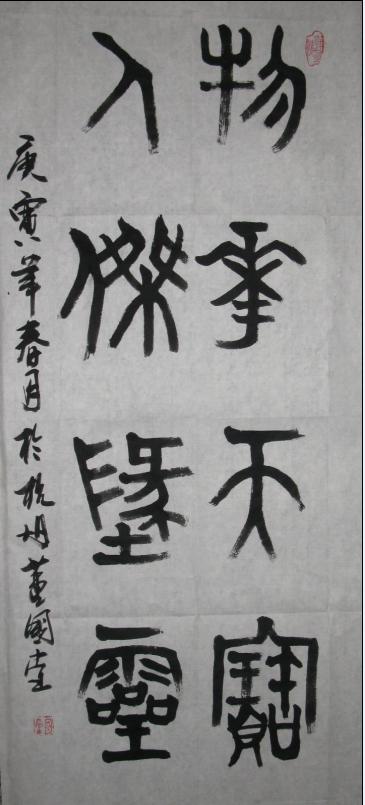 物華天寶
人傑墬靈
庚寅年春月於杭州董國